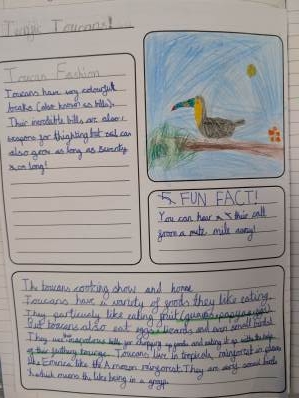 Jungle Toucans!
Toucan Fashion
Toucans have very colourful
beaks (also known as bills).
Their incredible bills are also
weapons for thighting but
also grow as long as
long!
FUN FACT!
You can hear their call
from a mile away!
The toucans cooking show and home
Toucans have a variety of goods they like eating.
They particularly like eating fruit
But toucans also eat eggs, lizards and even small
They use for chopping up goods and eating it up with the help
of their feathery tounge. Toucans live in tropical, in places
like the Amazon They are very social birds
which means they like being in a group.